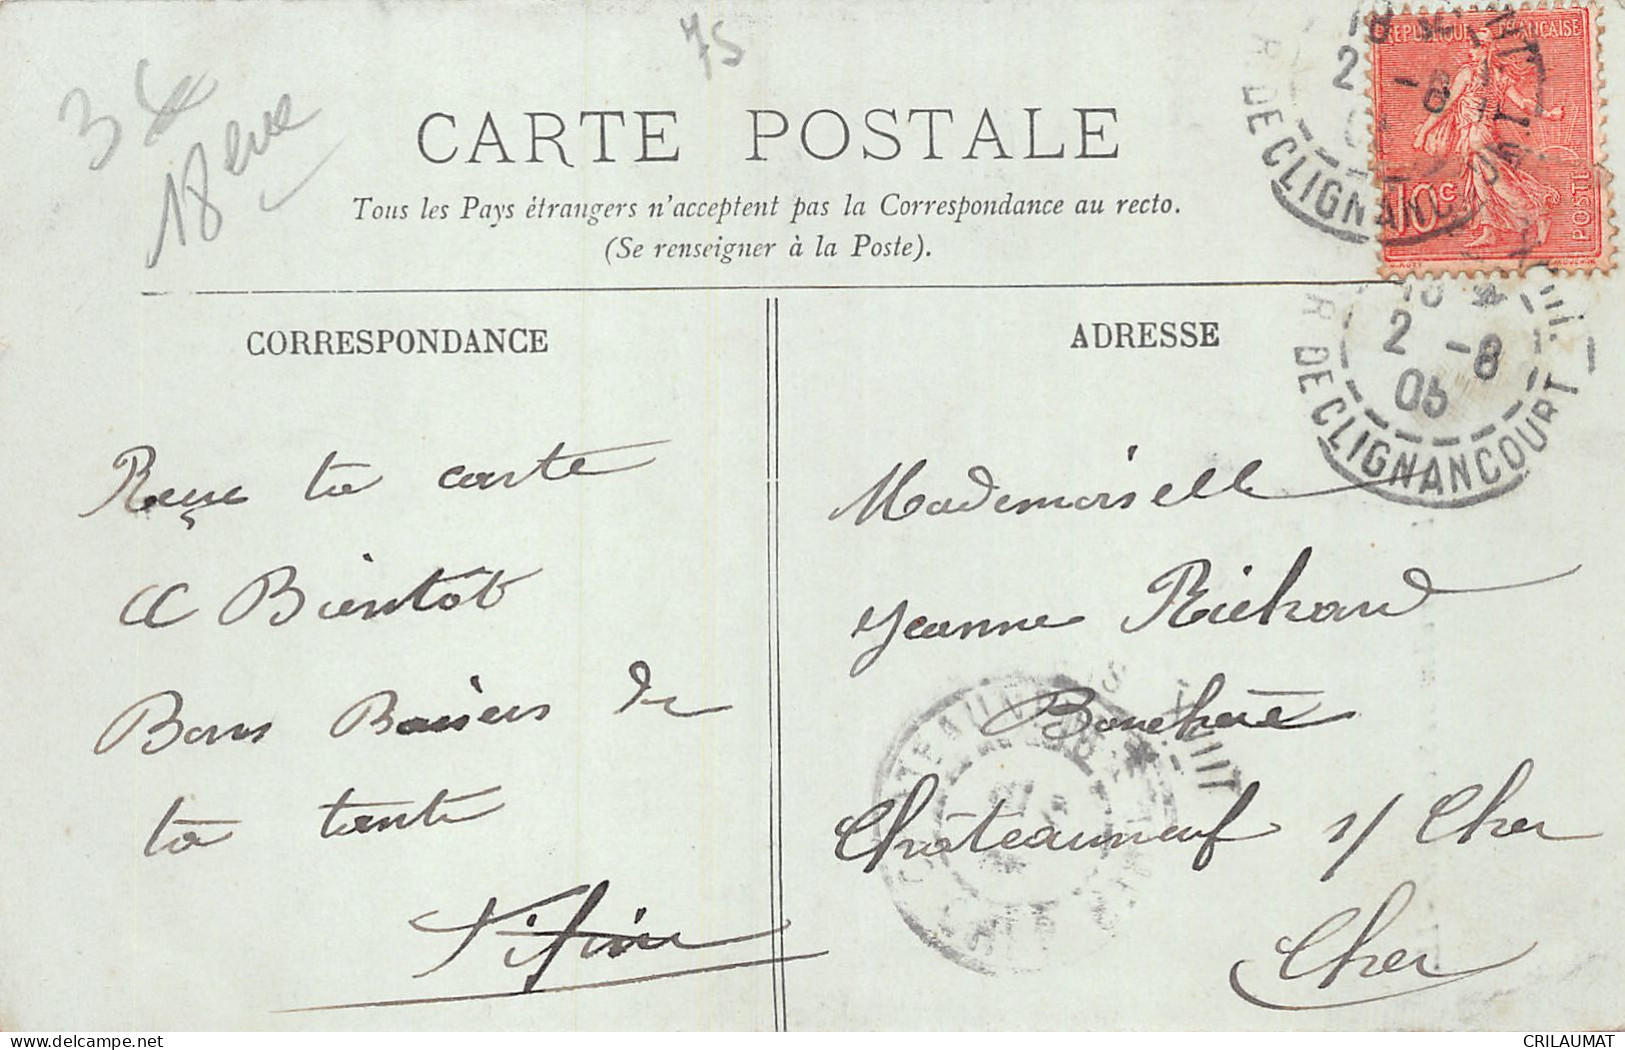 75
3€
18eme
CARTE POSTALE
Tous les Pays étrangers n'acceptent pas la Correspondance au recto.
(Se renseigner à la Poste).
REPUBLIQUE FRANÇAISE
10c
POSTES
R. DE CLIGNANCOURT
18
2 -8
05
R. DE CLIGNANCOURT
18
2 -8
05
CORRESPONDANCE
Reçu ta carte
A Bientôt
Bons Baisers de
ta tante
Fifine
ADRESSE
Mademoiselle
Jeanne Richard
Bouchère
Châteauneuf s/ Cher
Cher
CRILAUMAT